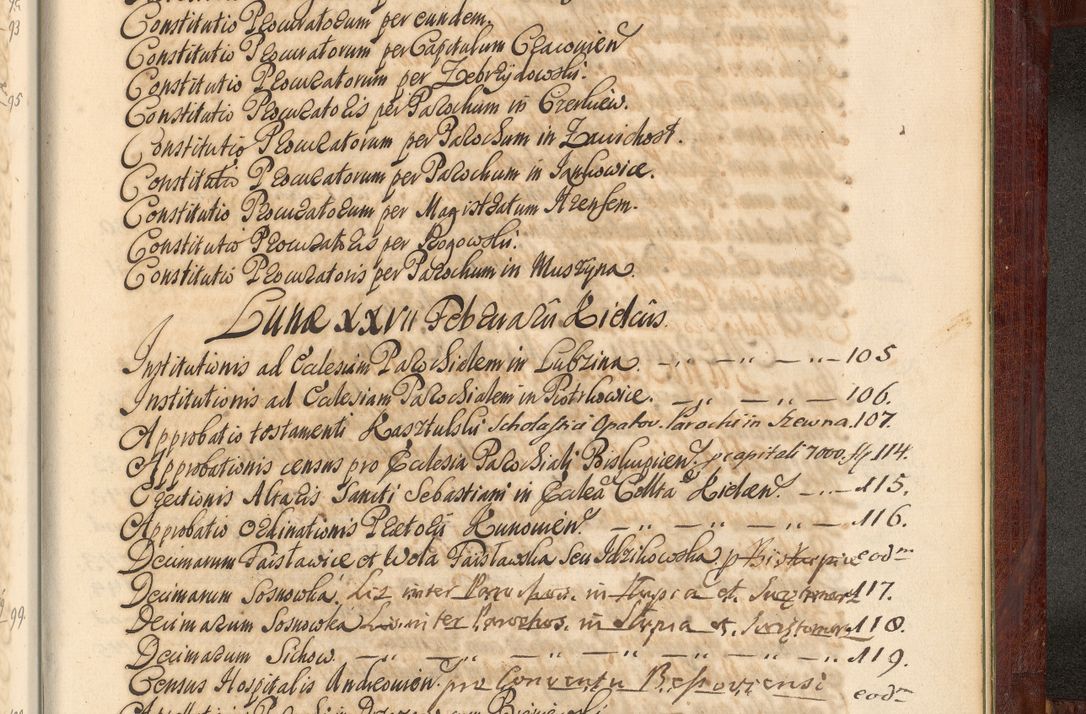 Constitutio Procuratorum per eundem.
Constitutio Procuratorum per Capitulum Cracovien
Constitutio Procuratorum per Zebrzydowski.
Constitutio Procuratoris per Parochum in Czerhiew.
Constitutio Procuratorum per Parochum in Zawichost.
Constitutio Procuratorum per Parochum in Jankowice.
Constitutio Procuratorum per Magistratum Ilzensem.
Constitutio Procuratoris per Rogowski.
Constitutio Procuratoris per Parochum in Muszyna.
Lunæ XXVII Februarii Kielciis.
Institutionis ad Ecclesiam Parochialem in Lubzina. 105
Institutionis ad Ecclesiam Parochialem in Piotrkowice. 106.
Approbatio testamenti Kasztulski Scholastici Opatov. Parochi in Szewna. 107.
Approbationis census pro Ecclesia Parochiali Biskupicen. p capitali 7000, 114.
Erectionis Altaris Sancti Sebastiani in Eccleã Collta Kielcen. 115.
Approbatio Ordinationis Prætorii Kunovien 116.
Decimarum Parslawice et Wola Parslawska Seu Idzikowska eodm
Decimarum Sosnowka. Lis inter Parochos. in Stupia et 117.
Decimarum Sosnowka Lis inter Parochos. in Stupia et 118.
Decimarum Sichow. 119.
Census Hospitalis Andreovien. pro Conventu eodm